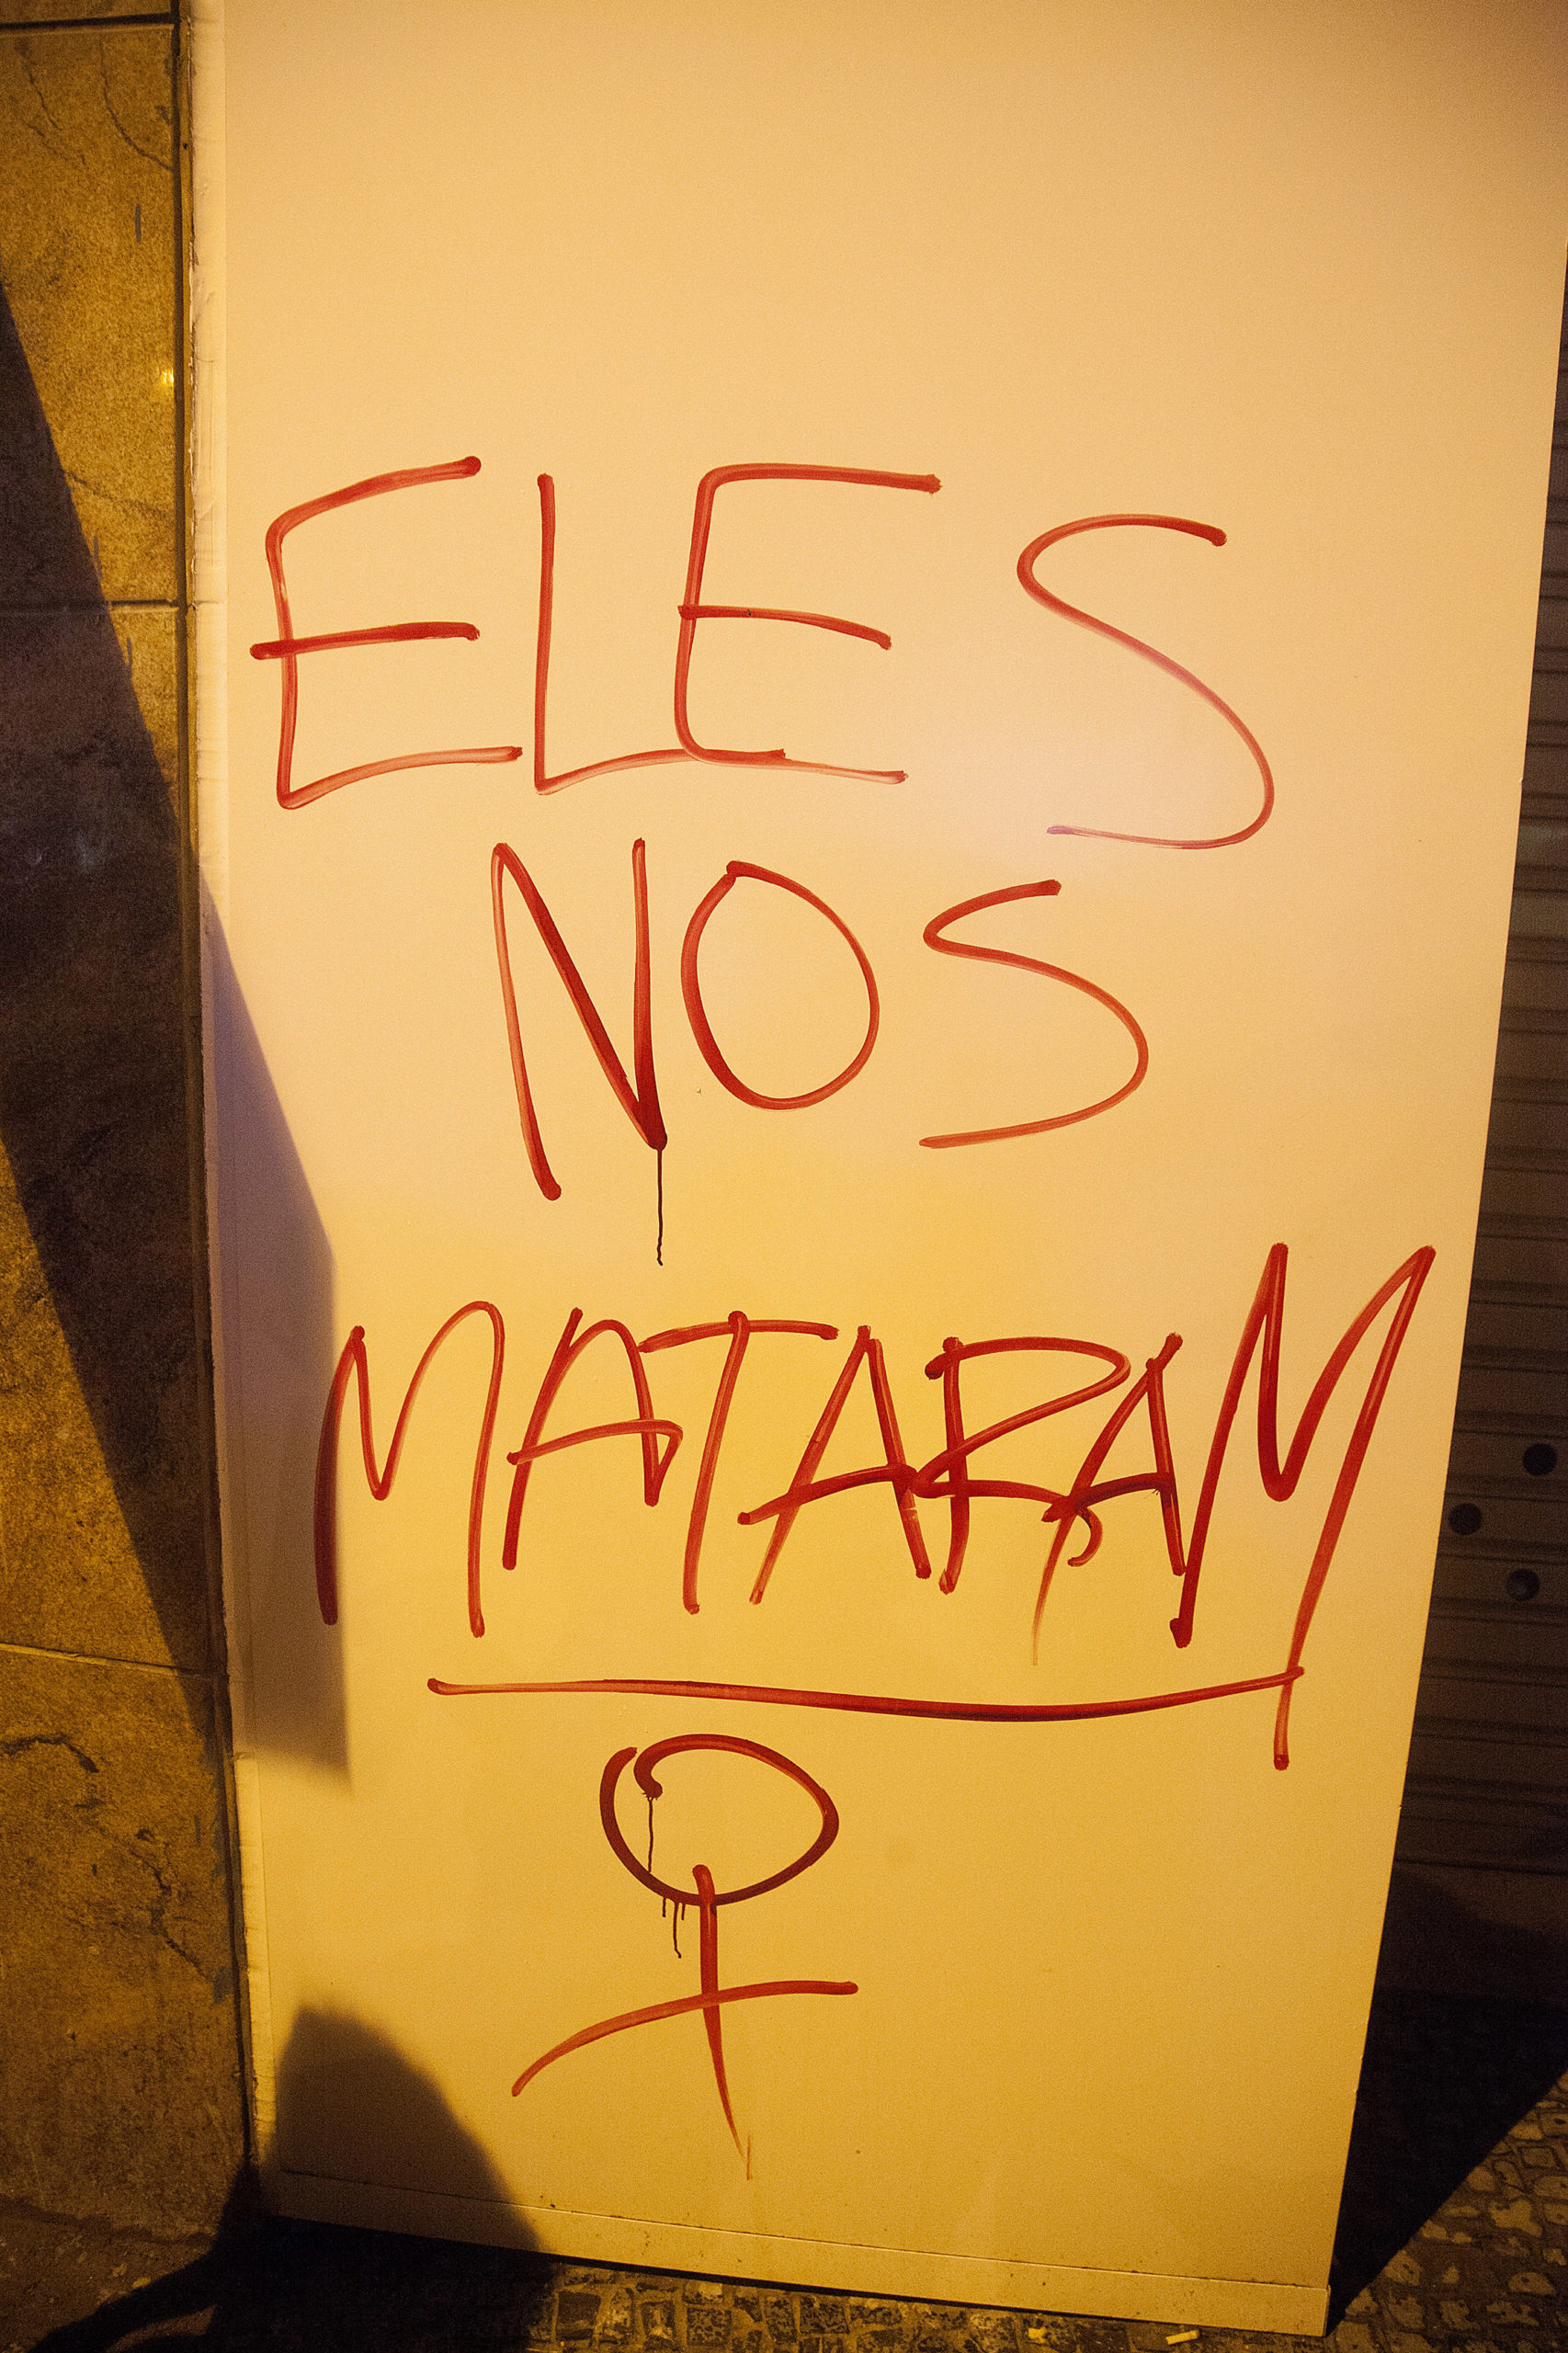 ELES
NOS
MATARAM
♀